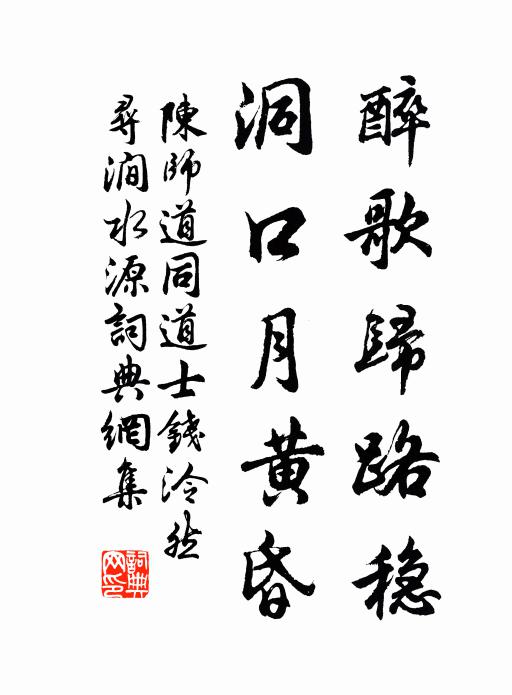 醉歌歸路穩
洞口月黃昏
陳師道同道士錢泠然
尋澗水源詞典網集
詞典網印